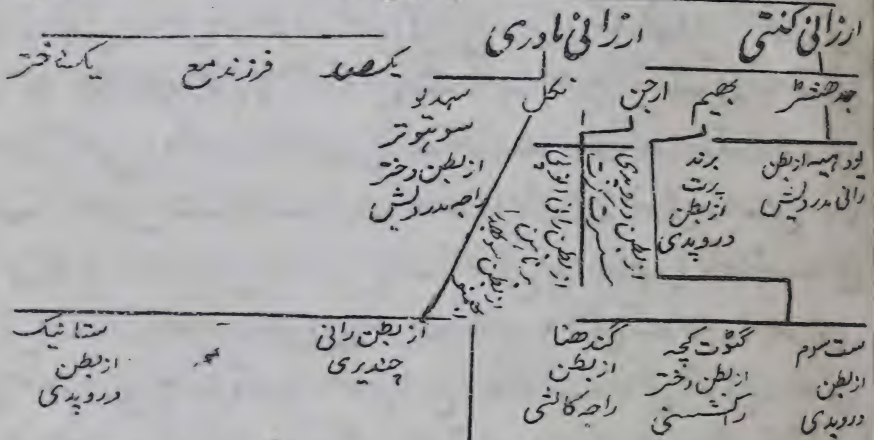 ارزانی کنتی
ارزانی مادری
یکصد فرزند مع یکناختر
جدهشٹر
بھیم
ارجن
نکل
سہدیو
سوہتوتر
ازبطن دختر
راجہ مدر دیش
یودہیہ ازبطن
رانی مدر دیش
برند
پرت
ازبطن
دروپدی
ازبطن دروپدی
ازبطن رانی
ست سوم
ازبطن
دروپدی
گٹوت کچہ
ازبطن دختر
راکشسنی
گندھنا
ازبطن
راجہ کانشی
ازبطن رانی
چندیری
ستانیک
ازبطن
دروپدی